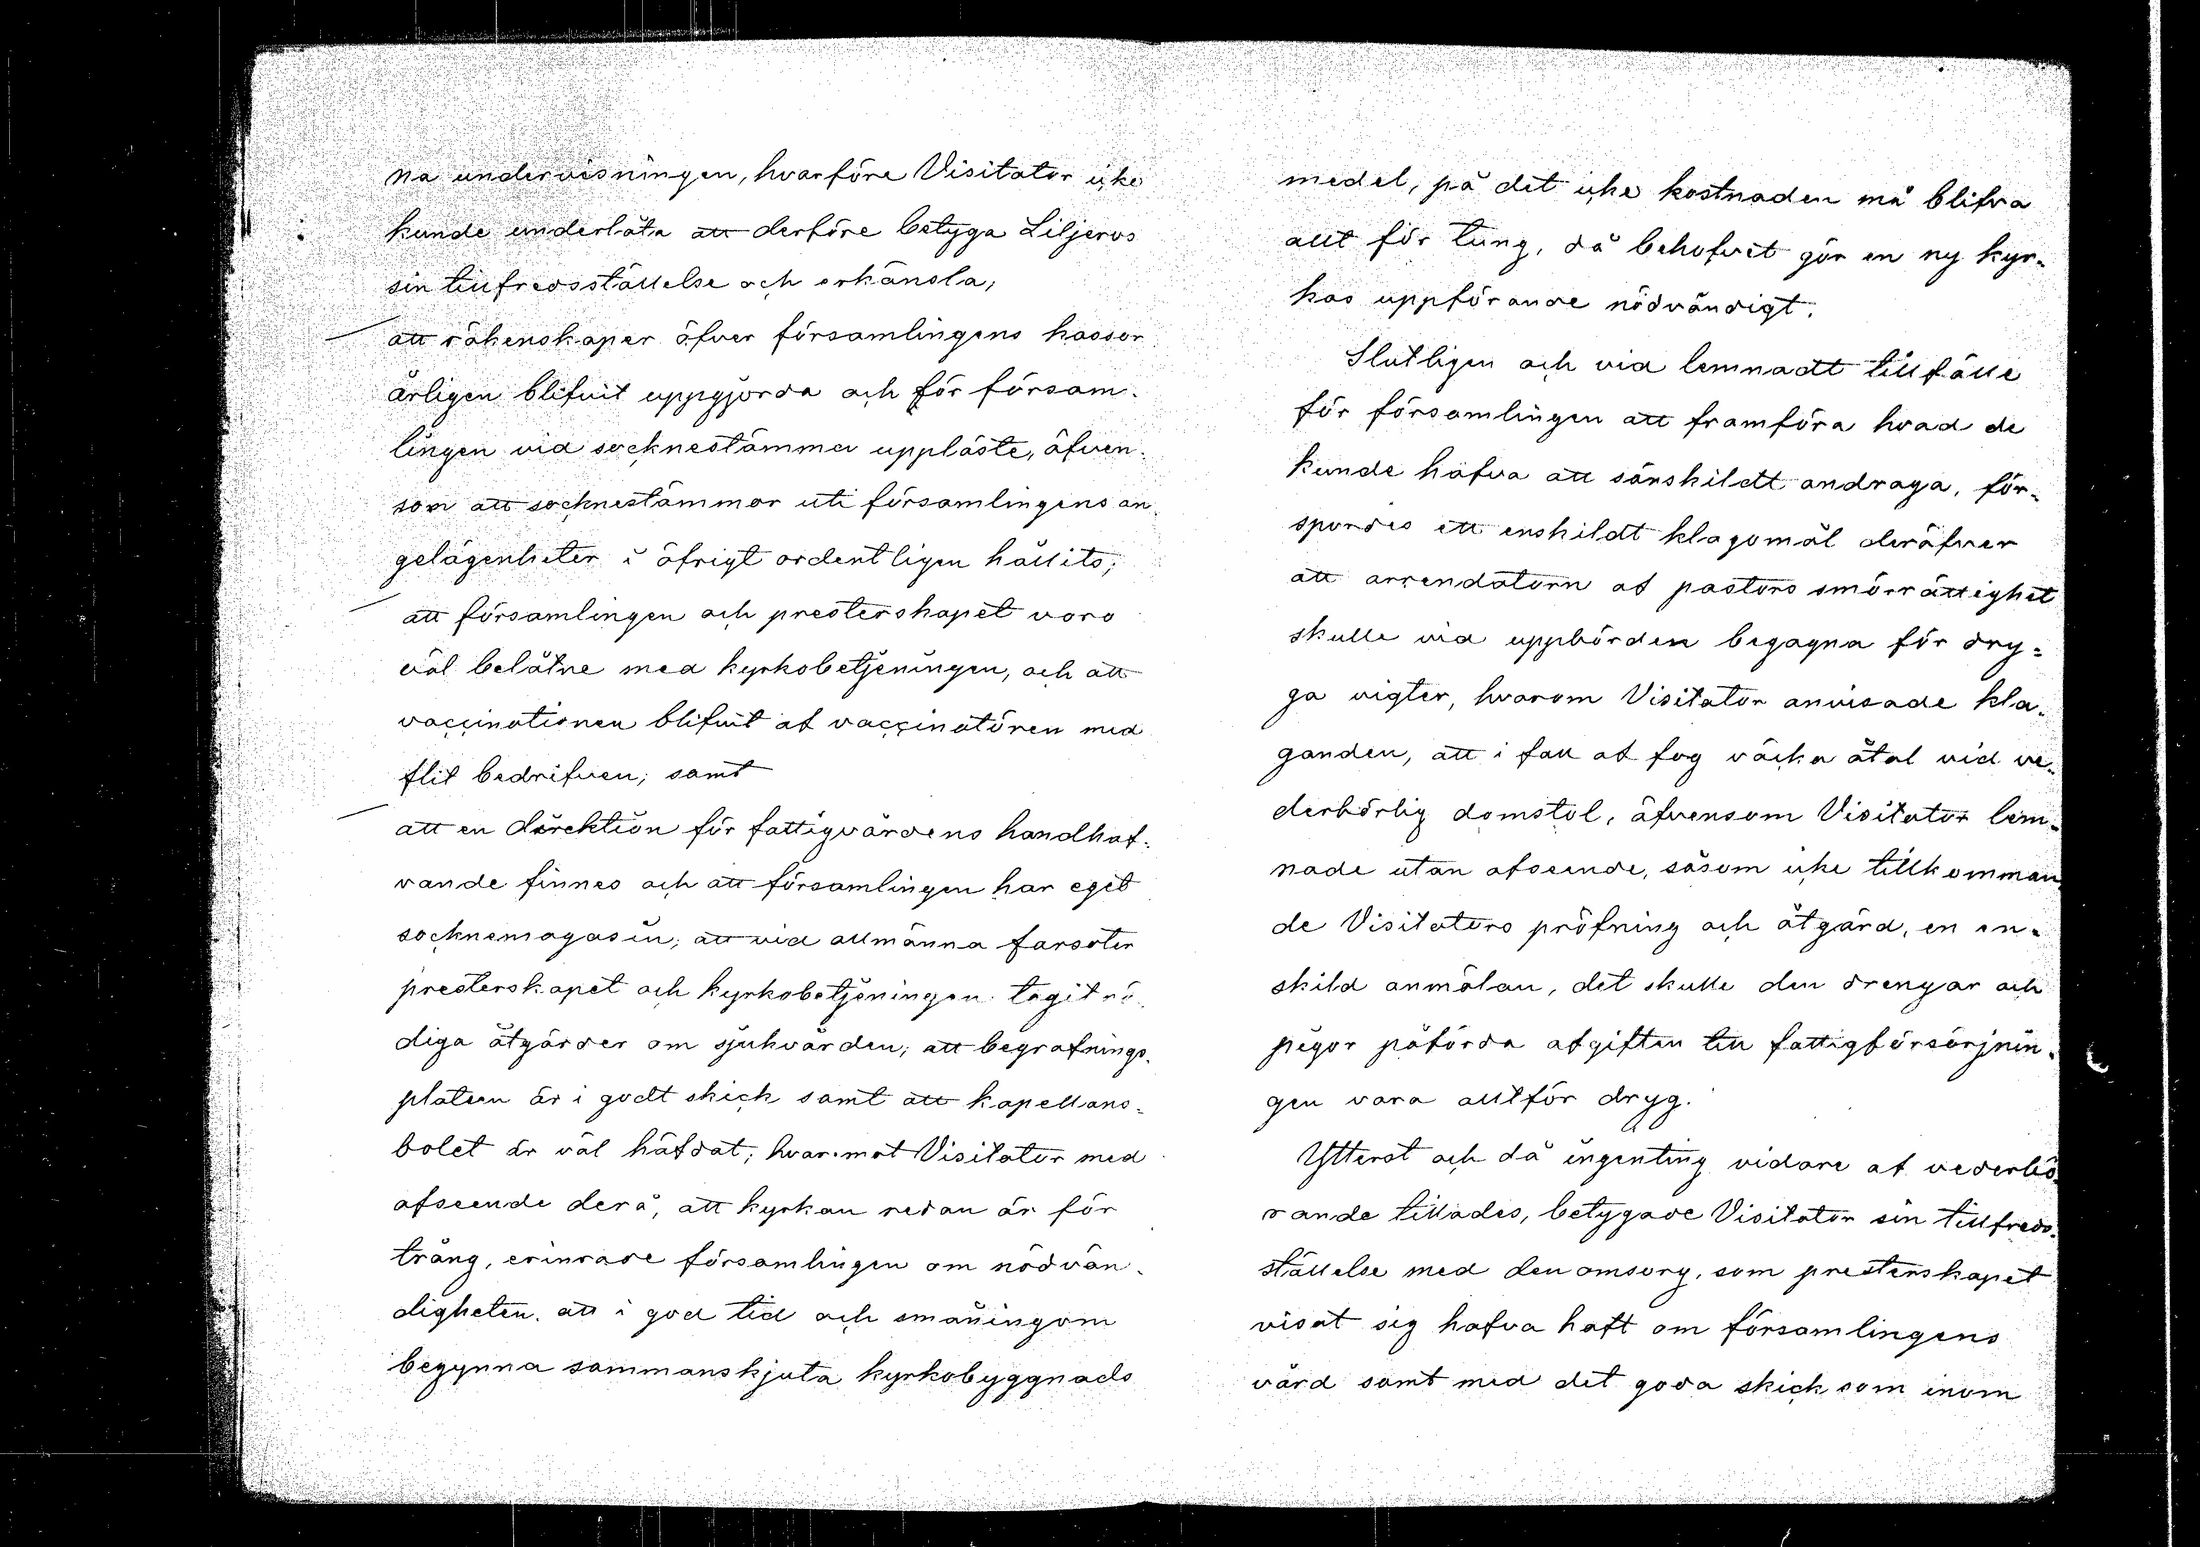 na undervisningen, hvarföre Visitator icke
kunde underlåta att derföre betyga Liljeros
sin tillfredsställelse och erkänsla;
att räkenskaper öfver församlingens kassor
årligen blifvit uppgjorda och för försam-
lingen vid socknestämma uppläste, äfven-
som att socknestämmor uti församlingens an-
gelägenheter i öfrigt ordentligen hållits;
att församlingen och presterskapet voro
väl belåtne med kyrkobetjeningen, och att
vaccinationen blifvit af vaccinatören med
flit bedrifven; samt
att en direktion för fattigvårdens handhaf-
vande finnes och att församlingen har eget
socknemagasin; att vid allmänna farsoter
presterskapet och kyrkobetjeningen tagit nö-
diga åtgärder om sjukvården; att begrafnings-
platsen är i godt skick samt att kapellans-
bolet är väl häfdat; hvaremot Visitator med
afseende derå, att kyrkan redan är för
trång, erinrade församlingen om nödvän-
digheten att i god tid och småningom
begynna sammanskjuta kyrkobyggnads
medel, på det icke kostnaden må blifva
allt för tung, då behofvet gör en ny kyr-
kas uppförande nödvändigt.
Slutligen och vid lemnadt tillfälle
för församlingen att framföra hvad de
kunde hafva att särskildt andraga, för-
spordes ett enskildt klagomål deröfver
att arrendatorn af pastors smörrättighet
skulle vid uppbörden begagna för dry-
ga vigter, hvarom Visitator anvisade kla-
ganden, att i fall af fog väcka åtal vid ve-
derbörlig domstol, äfvensom Visitator lem-
nade utan afseende, såsom icke tillkomman
de Visitators pröfning och åtgärd, en en-
skild anmälan, det skulle den drengar och
pigor påförda afgiften till fattigförsörjnin-
gen vara alltför dryg.
Ytterst och då ingenting vidare af vederbö-
rande tillades, betygade Visitator sin tillfreds-
ställelse med den omsorg, som presterskapet
visat sig hafva haft om församlingens
vård samt med det goda skick som inom